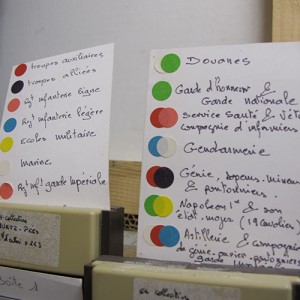 troupes auxiliaires
troupes alliées
Rgt infanterie ligne
Rgt infanterie légère
Ecoles militaire
Marine
Rgt inft garde Impériale
Douanes
Garde d'honneur &
Garde nationale
Service Santé &
compagnie d'infirmiers
Gendarmerie
Génie, sapeurs, mineurs
& pontonniers
Napoléon 1er & son
état major (19 cavaliers)
Artillerie & compagnie
garde
boîte 1